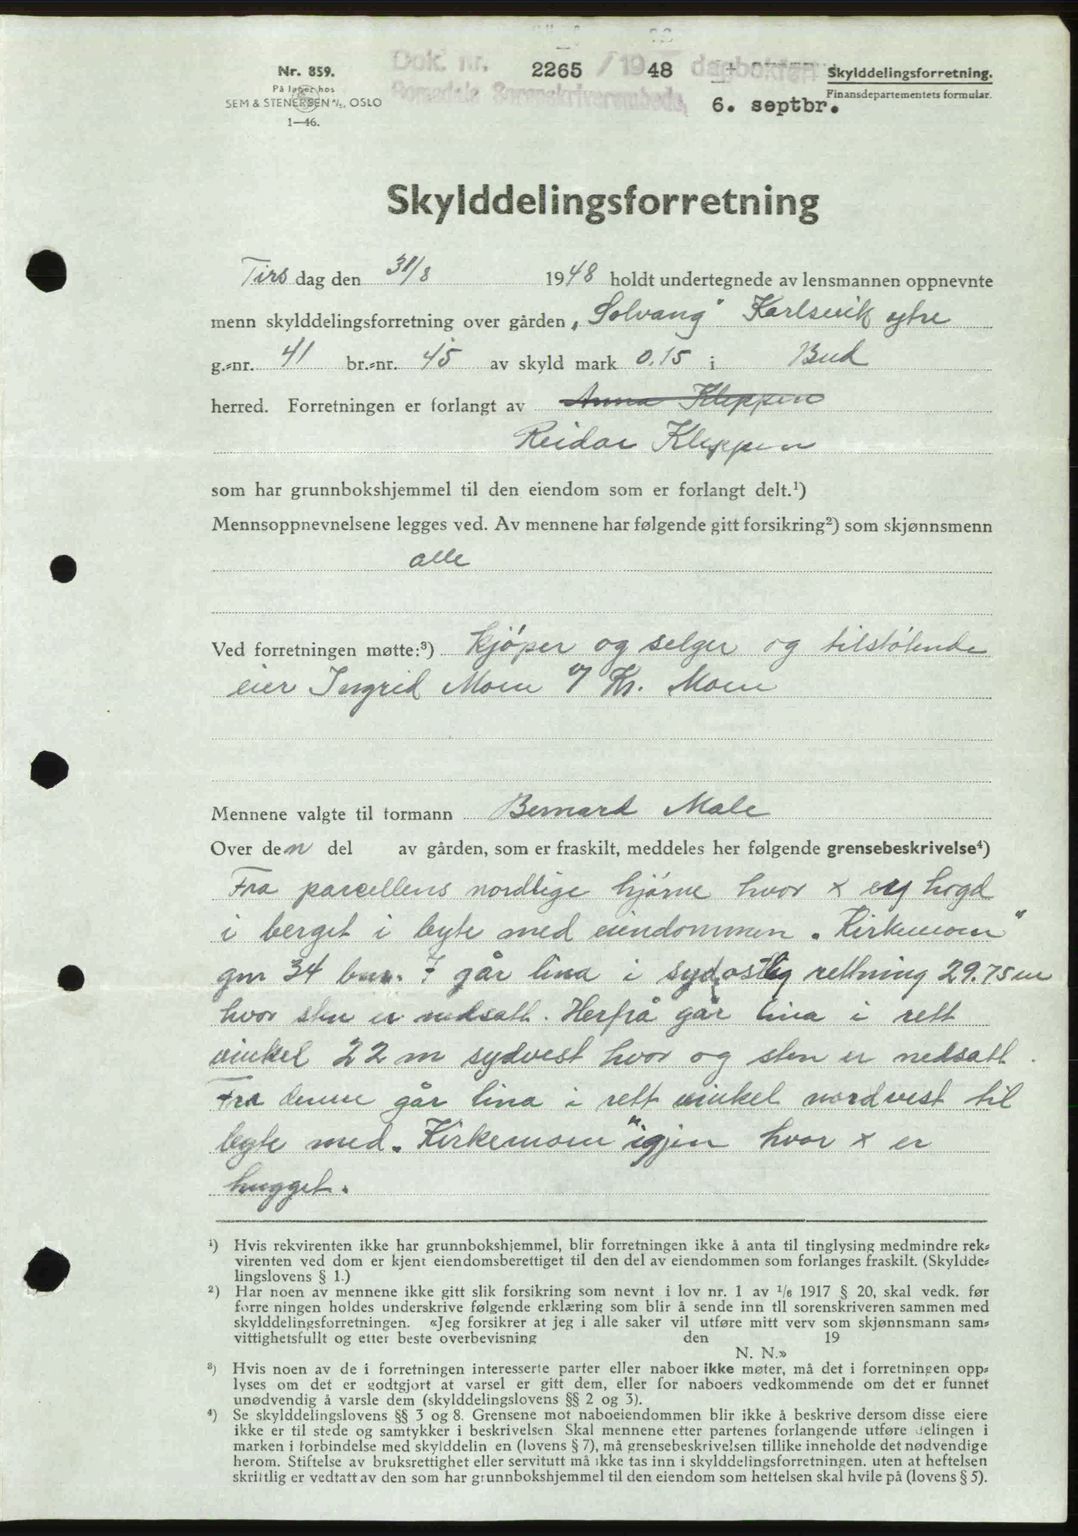 Nr. 859.
På lager hos
SEM & STENERSEN A/S, OSLO
1—46.
Dok. nr. 2265 / 1948 dagboken
Romsdals Sorenskriverembede,
6. septbr.
Skylddelingsforretning.
Finansdepartementets formular.
Skylddelingsforretning
Tirsdag den 31/8 1948 holdt undertegnede av lensmannen oppnevnte
menn skylddelingsforretning over gården „Solvang" Karlsvik ytre
g.-nr. 41 br.-nr. 45 av skyld mark 0,15 i Bud
herred. Forretningen er forlangt av Anna Kleppen
Reidar Kleppen
som har grunnbokshjemmel til den eiendom som er forlangt delt.¹)
Mennsoppnevnelsene legges ved. Av mennene har følgende gitt forsikring²) som skjønnsmenn
alle
Ved forretningen møtte:³) Kjøper og selger og tilstøtende
eier Ingrid Moen v/ Kr. Moen
Mennene valgte til formann Bernard Male
Over den del av gården, som er fraskilt, meddeles her følgende grensebeskrivelse⁴)
Fra parcellens nordlige hjørne hvor x er hogd
i berget i byte med eiendommen „Kirkemoen"
gnr 34 bnr. 7 går lina i sydostlig rettning 29.75 m
hvor sten er nedsatt. Herfrå går lina i rett
vinkel 22 m sydvest hvor og sten er nedsatt.
Fra denne går lina i rett vinkel nordvest til
byte med „Kirkemoen" igjen hvor x er
hugget.
¹) Hvis rekvirenten ikke har grunnbokshjemmel, blir forretningen ikke å anta til tinglysing medmindre rek-
virenten ved dom er kjent eiendomsberettiget til den del av eiendommen som forlanges fraskilt. (Skyldde-
lingslovens § 1.)
²) Har noen av mennene ikke gitt slik forsikring som nevnt i lov nr. 1 av 1/6 1917 § 20, skal vedk. før
forretningen holdes underskrive følgende erklæring som blir å sende inn til sorenskriveren sammen med
skylddelingsforretningen. «Jeg forsikrer at jeg i alle saker vil utføre mitt verv som skjønnsmann sam-
vittighetsfullt og etter beste overbevisning den 19
N. N.»
³) Hvis noen av de i forretningen interesserte parter eller naboer ikke møter, må det i forretningen opp-
lyses om det er godtgjort at varsel er gitt dem, eller for naboers vedkommende om det er funnet
unødvendig å varsle dem (skylddelingslovens §§ 2 og 3).
⁴) Se skylddelingslovens §§ 3 og 8. Grensene mot naboeiendommen blir ikke å beskrive dersom disse eiere
ikke er til stede og samtykker i beskrivelsen. Skal mennene etter partenes forlangende utføre delingen i
marken i forbindelse med skylddelingen (lovens § 7), må grensebeskrivelsen tillike inneholde det nødvendige
herom. Stiftelse av bruksrettighet eller servitutt må ikke tas inn i skylddelingsforretningen, uten at heftelsen
skriftlig er vedtatt av den som har grunnbokshjemmel til den eiendom som heftelsen skal hvile på (lovens § 5).